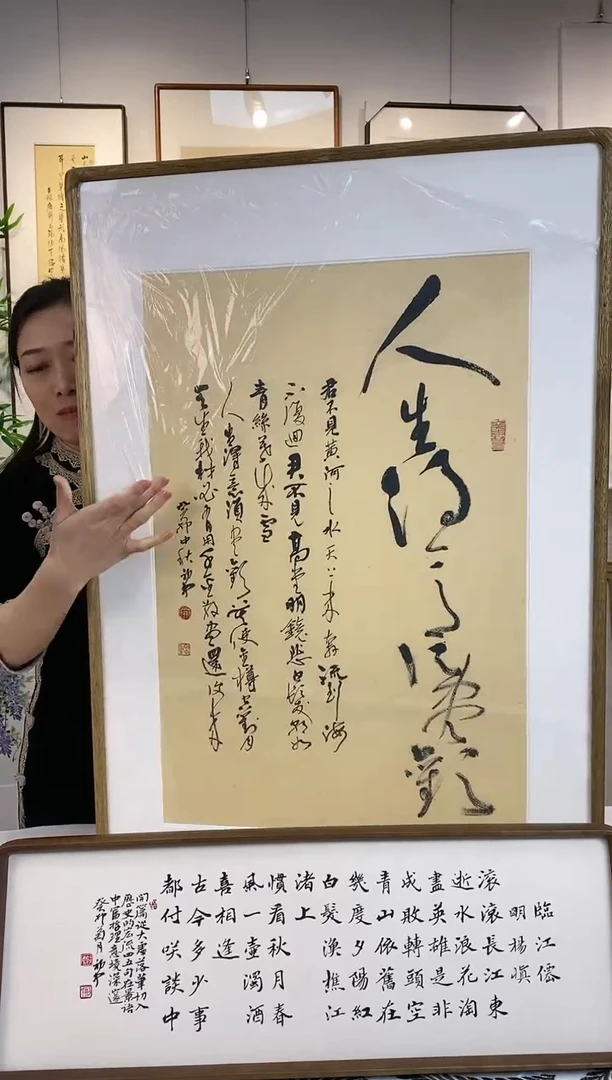 人生得意須盡歡
君不見黃河之水天上來奔流到海
不復回君不見高堂明鏡悲白髮朝如
青絲暮成雪
人生得意須盡歡莫使金樽空對月
天生我材必有用千金散盡還復來
癸卯中秋
臨江僊
明楊慎
滾滾長江東
逝水浪花淘
盡英雄是非
成敗轉頭空
青山依舊在
幾度夕陽紅
白髮漁樵江
渚上
慣看秋月春
風一壺濁酒
喜相逢
古今多少事
都付咲談中
開篇從大處落筆切入
歷史的洪流四五句在景語
中富哲理意境深邃
癸卯菊月